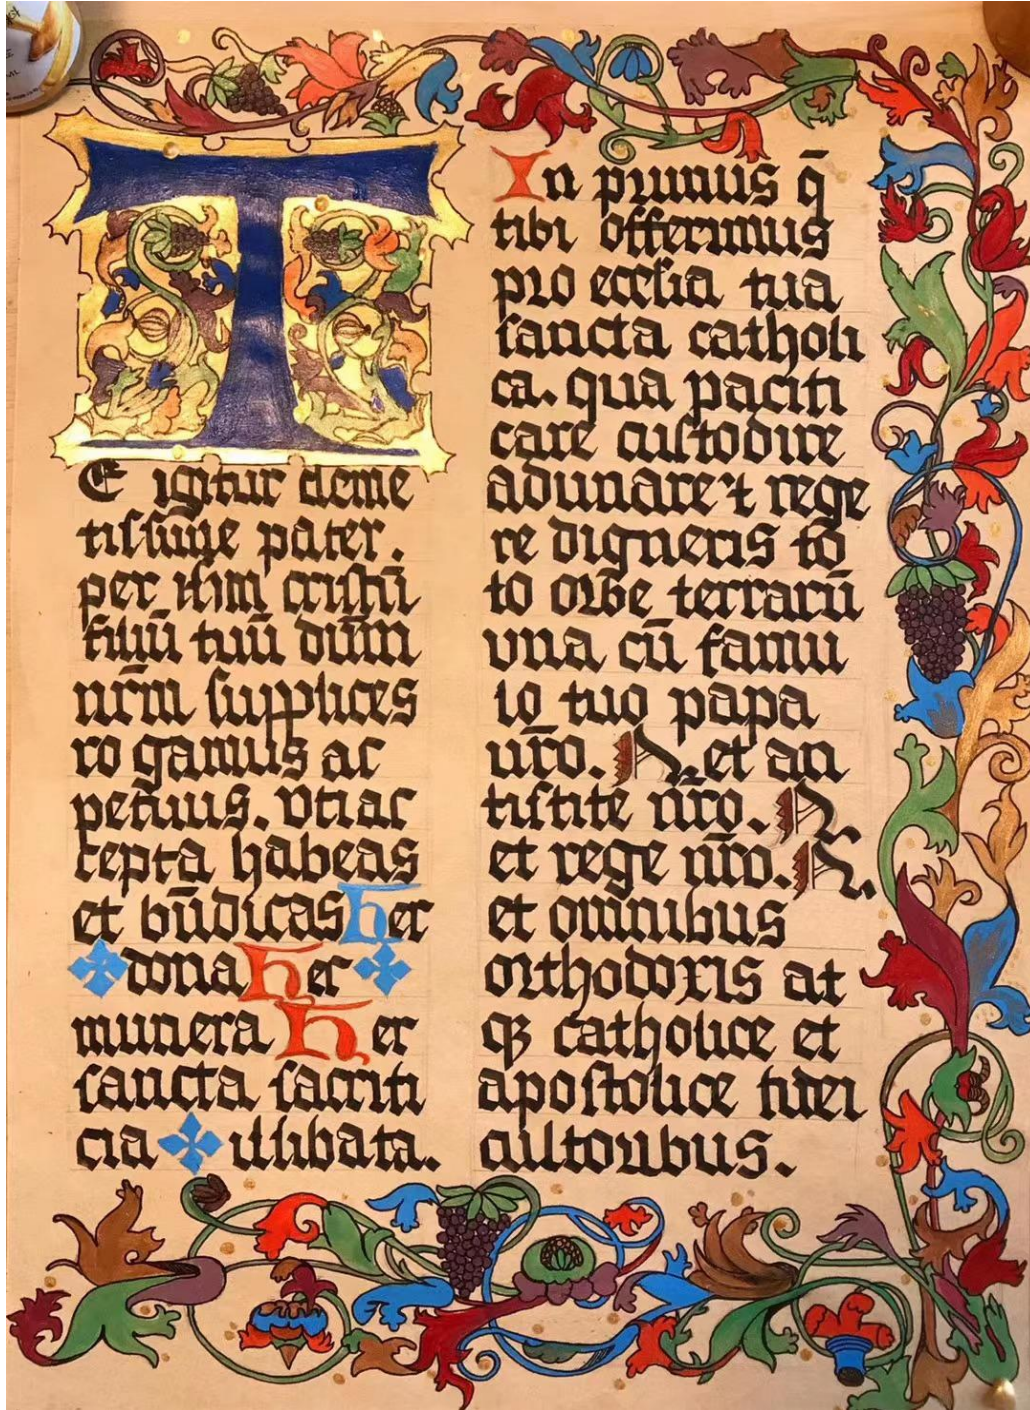 TE igitur cleme
tissime pater.
per ihm cristū
filiū tuū dūm
nr̄m supplices
ro gamus ac
petim̄us. vti ac
cepta habeas
et bn̄dicas hec
✥ dona hec ✥
munera hec
sancta sacrifi
cia ✥ illibata.
In primis q̄
tibi offerimus
pro eccesia tua
sancta catholi
ca. qua pacifi
care custodire
adunare ⁊ rege
re digneris to
to orbe terrarū
vna cū famu
lo tuo papa
nr̄o. N. et an
tistite nr̄o. N.
et rege nr̄o. N.
et omnibus
orthodoxis at
qꝫ catholice et
apostolice fidei
cultoribus.